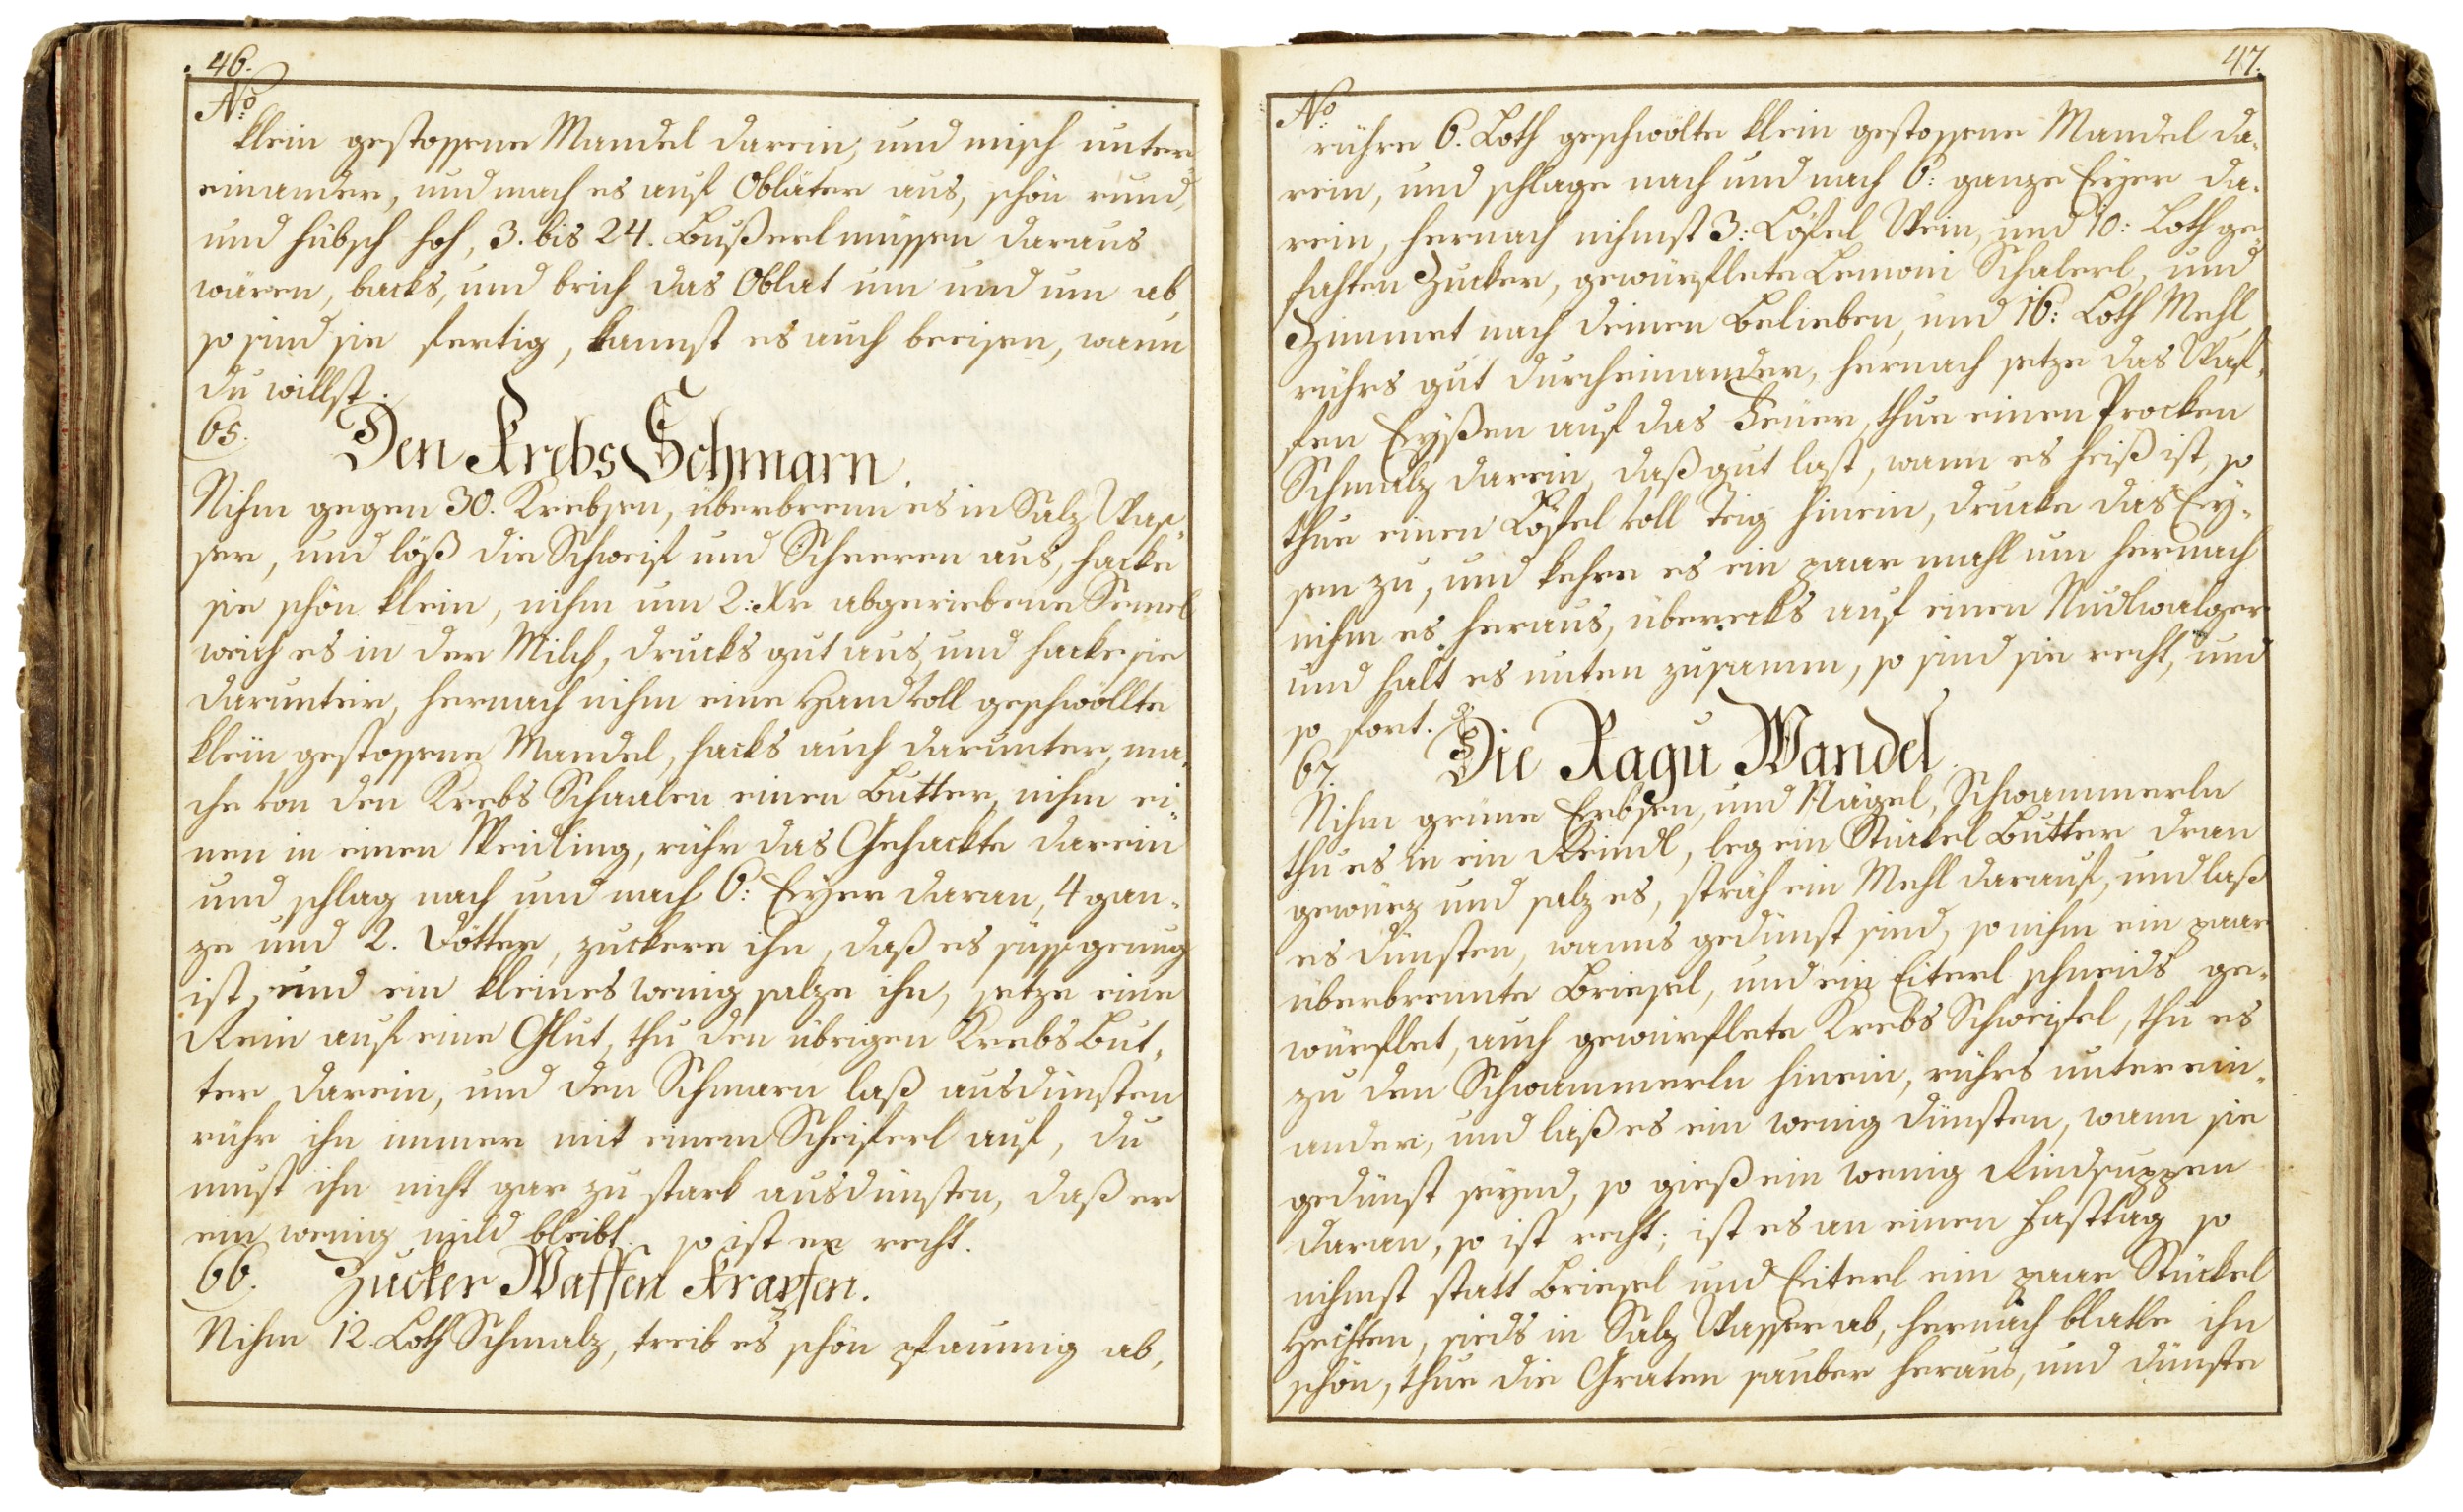 46.
No
klein gestossene Mandel darein, und misch unter
einander, und mach es auf Oblater aus, schön rund,
und hübsch hoh, 3. bis 24. Bußerl müssen daraus
wären, backs, und brich das Oblat um und um ab
so sind sie fertig, kannst es auch beeisen, wann
du willst.
65. Den Krebs Schmarn.
Nihm gegen 30. Krebsen, überbrenn es in Salz Was„
ser, und löß die Schweif und Scheeren aus, hacke
sie schön klein, nihm um 2: Xr abgeriebene Semel
weich es in der Milch, drucks gut aus, und hacke sie
darunter, hernach nihm eine Hand voll geschwöllte
klein gestossene Mandel, hacks auch darunter, ma„
che von den Krebs Schaalen einen Butter, nihm ei„
nen in einen Weidling, rühr das Gehackte darein
und schlag nach und nach 6: Eyer daran, 4 gan„
ze und 2. Dötter, zuckere ihn, daß es süss genug
ist, und ein kleines wenig salze ihn, setze eine
Rein auf eine Glut, thu den übrigen Krebs But„
ter darein, und den Schmarn laß ausdünsten
rühr ihn immer mit einem Scheiferl auf, du
must ihn nicht gar zu stark ausdünsten, daß er
ein wenig mild bleibt. so ist er recht.
66. Zucker Waffen Krapfen.
Nihm 12 Loth Schmalz, treib es schön pfaumig ab,
47.
No
rühre 6. Loth geschwölte klein gestossene Mandel da„
rein, und schlage nach und nach 6: ganze Eyer da„
rein, hernach nihmst 3: Löfel Wein, und 10: Loth ge„
fahten Zucker, gewürflete Lemoni Schalerl, und
Zimmet nach deinen Belieben, und 16: Loth Mehl,
rührs gut durcheinander, hernach setze das Waf„
fen Eyßen auf das Feüer, thue einen Brocken
Schmalz darein, daß gut last, wann es heiß ist, so
thue einen Löfel voll Teig hinein, drucke das Ey„
sen zu, und kehre es ein paar mahl um hernach
nihm es heraus, überecks auf einen Nudlwalger
und halt es unten zusamm, so sind sie recht, und
so fort.
67. Die Ragu Wandel.
Nihm grüne Erbsen, und Nägel, Schwammerln
thu es in ein Reindl, leg ein Stückel Butter dran
gewürz und salz es, sträh ein Mehl darauf, und laß
es dünsten, wanns gedünst sind, so nihm ein paar
überbrennte Briesel, und ein Eiterl schneids ge„
würflet, auch gewürflete Krebs Schweifel, thu es
zu den Schwammerln hinein, rührs unterein„
ander, und laß es ein wenig dünsten, wann sie
gedünst seynd, so gieß ein wenig Rindsuppen
daran, so ist recht; ist es an einen Fasttag so
nihmst statt Briesel und Eiterl ein paar Stückel
Hechten, sieds in Salz Wasser ab, hernach blattle ihn
schön, thue die Graten sauber heraus, und dünste